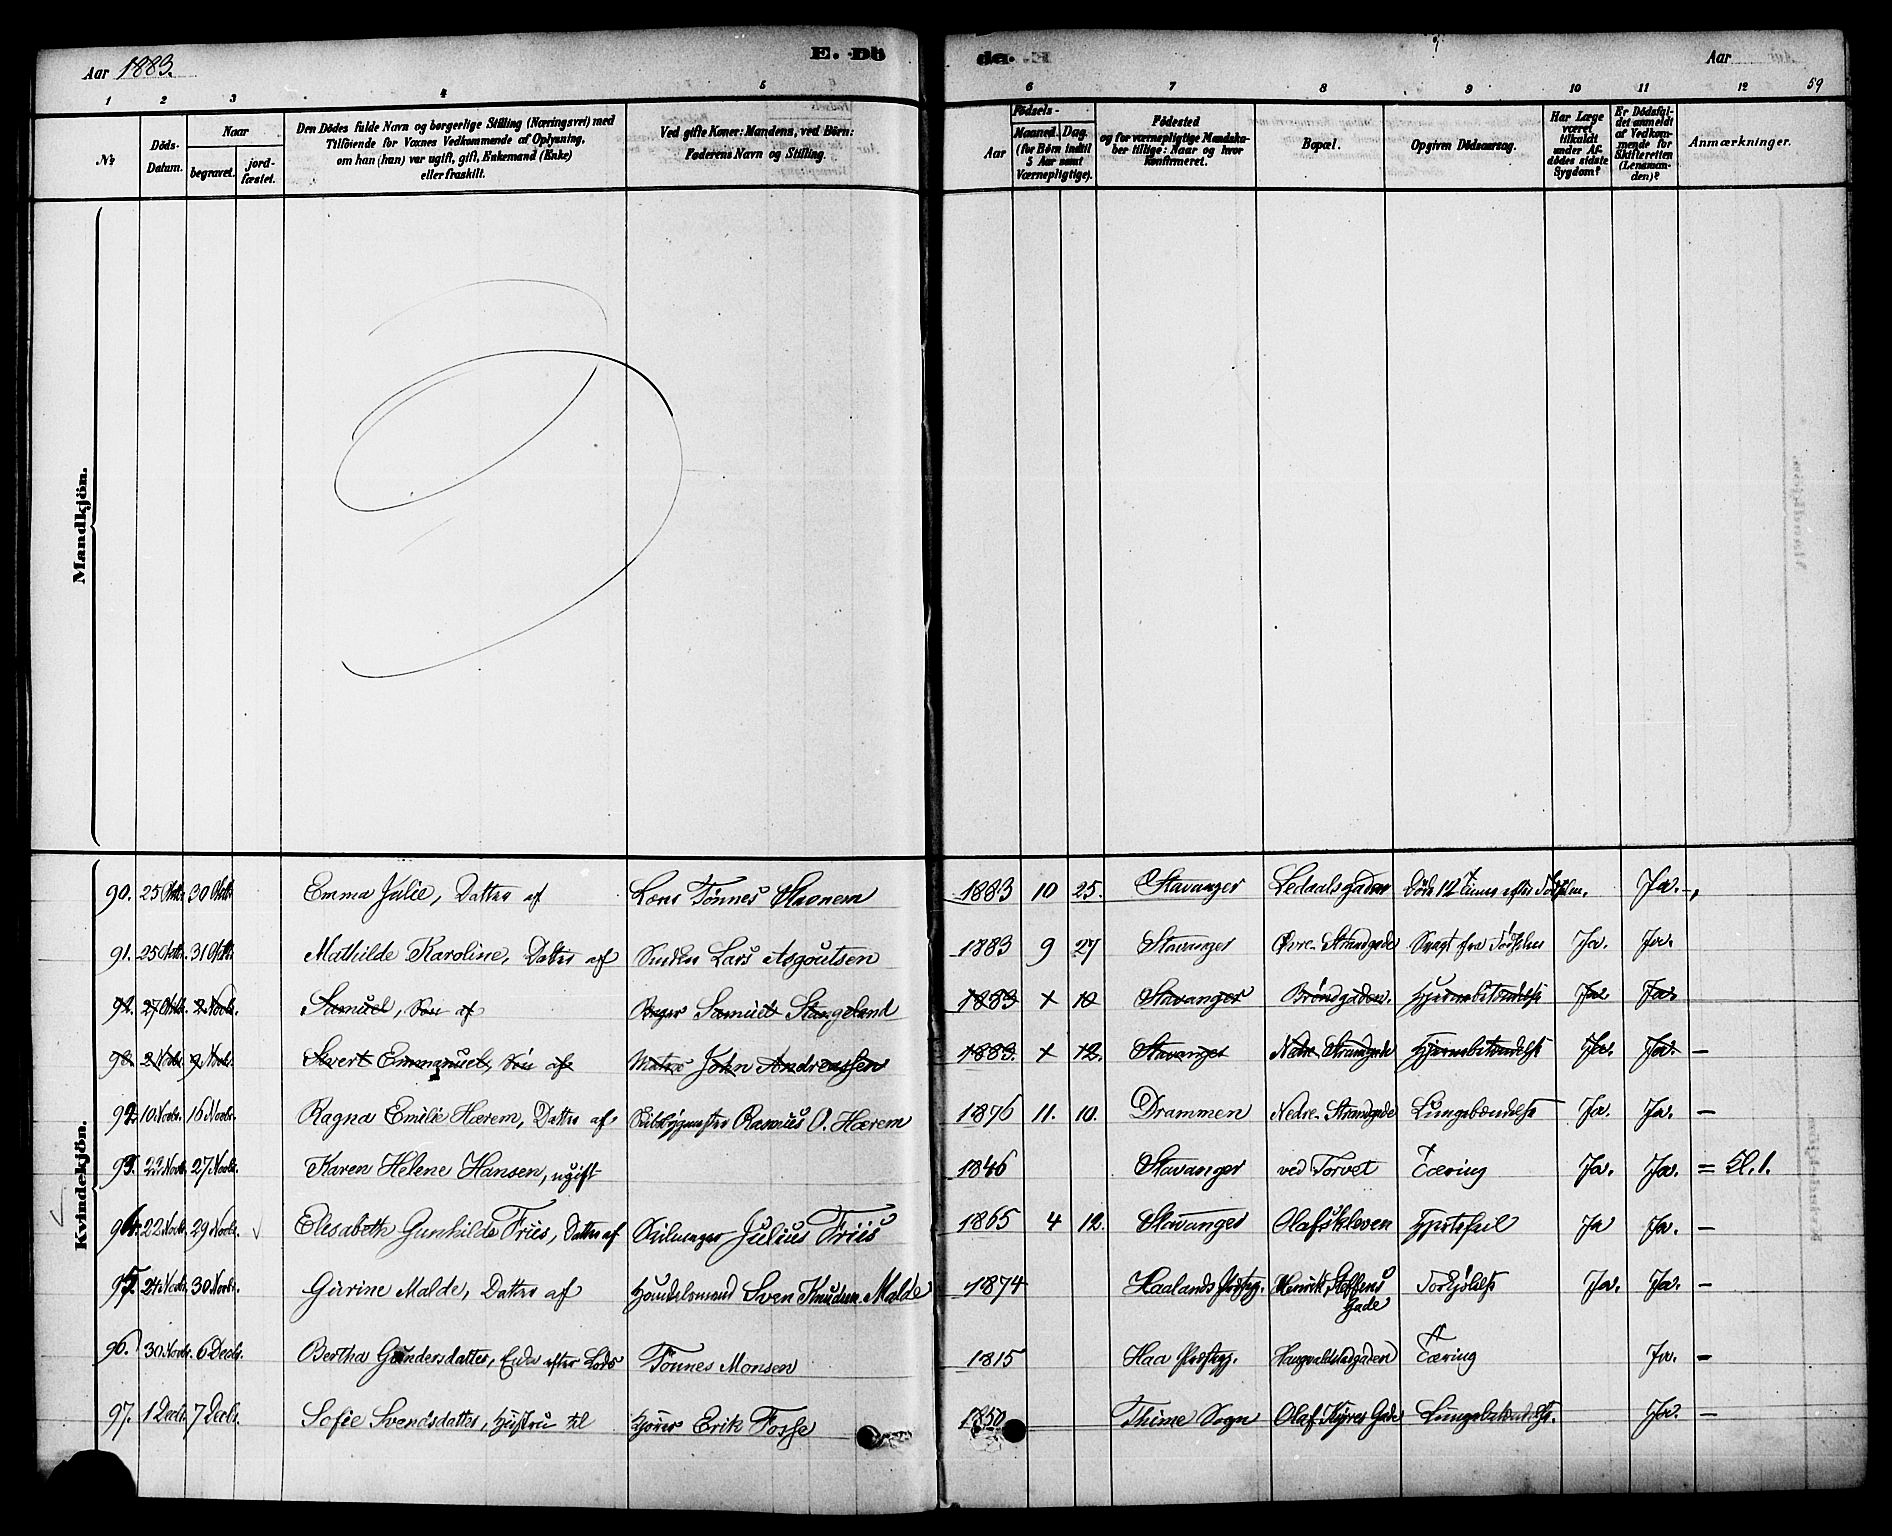 Aar 1883.
E. Dö
de. E
Aar
59
1 2 3 4 5 6 7 8 9 10 11 12
№
Döds-Datum.
Naar
begravet.
jord-fæstet.
Den Dödes fulde Navn og borgerlige Stilling (Næringsvei) med
Tilföiende for Voxnes Vedkommende af Oplysning,
om han (hun) var ugift, gift, Enkemand (Enke)
eller fraskilt.
Ved gifte Koner: Mandens, ved Börn:
Faderens Navn og Stilling.
Födsels-
Aar
Maaned. Dag.
(for Börn indtil
5 Aar samt
Værnepligtige).
Födested
og for værnepligtige Mandska-
ber tillige: Naar og hvor
Konfirmeret.
Bopæl.
Opgiven Dödsaarsag.
Har Læge
været
tilkaldt
under Af-
dödes sidste
Sygdom?
Er Dödsfal-
det anmeldt
af Vedkom-
mende for
Skifteretten
(Lensman-
den)?
Anmærkninger.
Mandkjön.
Kvindekjön.
90. 25 Oktb. 30 Oktb. Emma Julie, Datter af Lars Tönnes 1883 10 25. Stavanger Ledaalsgaden Döde 12 Timer efter Födselen. Ja. -
91. 25 Oktb. 31 Oktb. Mathilde Karoline, Datter af Lars Asgoutsen 1883 9 27 Stavanger Övre Strandgade Svagt fra Födselen Ja. Ja.
92. 27 Oktb. 2 Novbr. Samuel, Sön af Samuel Stangeland 1883 10 Stavanger Bröndgaden. Hjernebetændelse Ja. Ja.
93. 2 Novbr. 9 Novbr. Sivert Emmanuel, Sön af Matros John Andreassen 1883. 12. Stavanger Nedre Strandgade Hjernebetændelse Ja. Ja. -
92. 10 Novbr. 16 Novbr. Ragna Emilie Hærem, Datter af Rasmus O. Hærem 1876 11. 10. Drammen Nedre Strandgade Lungebændelse Ja. Ja. -
93. 22 Novbr. 27 Novbr. Karen Helene Hansen, ugift 1846 Stavanger ved Torvet Tæring Ja. Ja. = Kl. 1.
94. 22 Novbr. 29 Novbr. Elisabeth Gunhilde Friis, Datter af Julius Friis 1865 4 12. Stavanger Olafskleven Hjertefeil Ja Ja. -
95. 24 Novbr. 30 Novbr. Gurine Malde, Datter af Handelsmand Sven Knudsen Malde 1874 Haalands Præstegj. Henrik Steffens Gade Forkjölelse Ja. Ja. -
96. 30 Novbr. 6 Decbr. Bertha Gundersdatter, Enke efter Lods Tönnes Monsen 1815 Haa Præstegj. Haugvaldstadgaden Tæring Ja. -
97. 1 Decbr. 7 Decbr. Sofie Svendsdatter, Hustru til Erik Fosse 1850 Thime Sogn Olaf Kyrres Gade Lungebetændelse. Ja. -